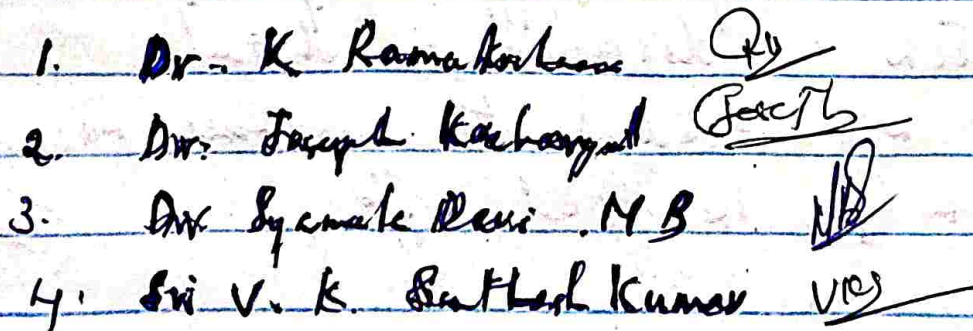 1. Dr. K Ramakrishnan
2. Dr. Joseph
3. Dr Syamala Devi . M B
4. Sri V. K. Santhosh Kumar VKS